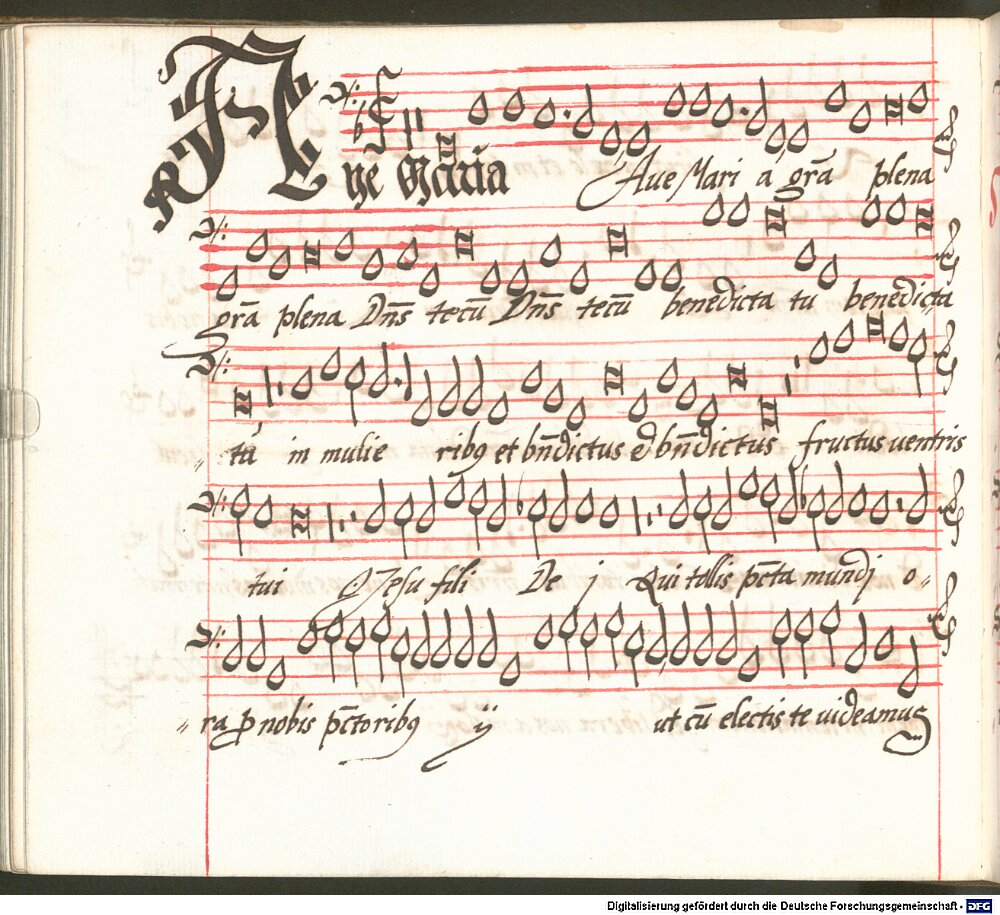 Aue Maria Aue Mari a grã plena
grã plena Dñs tecũ Dñs tecũ benedicta tu benedicta
tu in mulie ribꝯ et bñdictus & bñdictus fructus uentris
tui Jesu fili De j Qui tollis pc̃ta mundj o-
ra ꝓ nobis pc̃toribꝯ ij ut cũ electis te uideamus
Digitalisierung gefördert durch die Deutsche Forschungsgemeinschaft - DFG